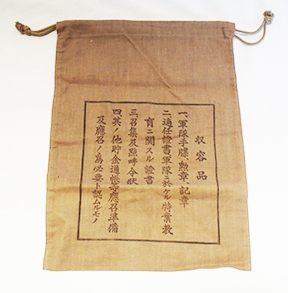 収容品
一、軍隊手牒、勲章、記章
二、適任證書軍隊ニ於ケル特業教
育ニ関スル證書
三、召集及點呼令状
四、其ノ他貯金通帳等應召準備
及應召ノ為必要ト認ムルモノ